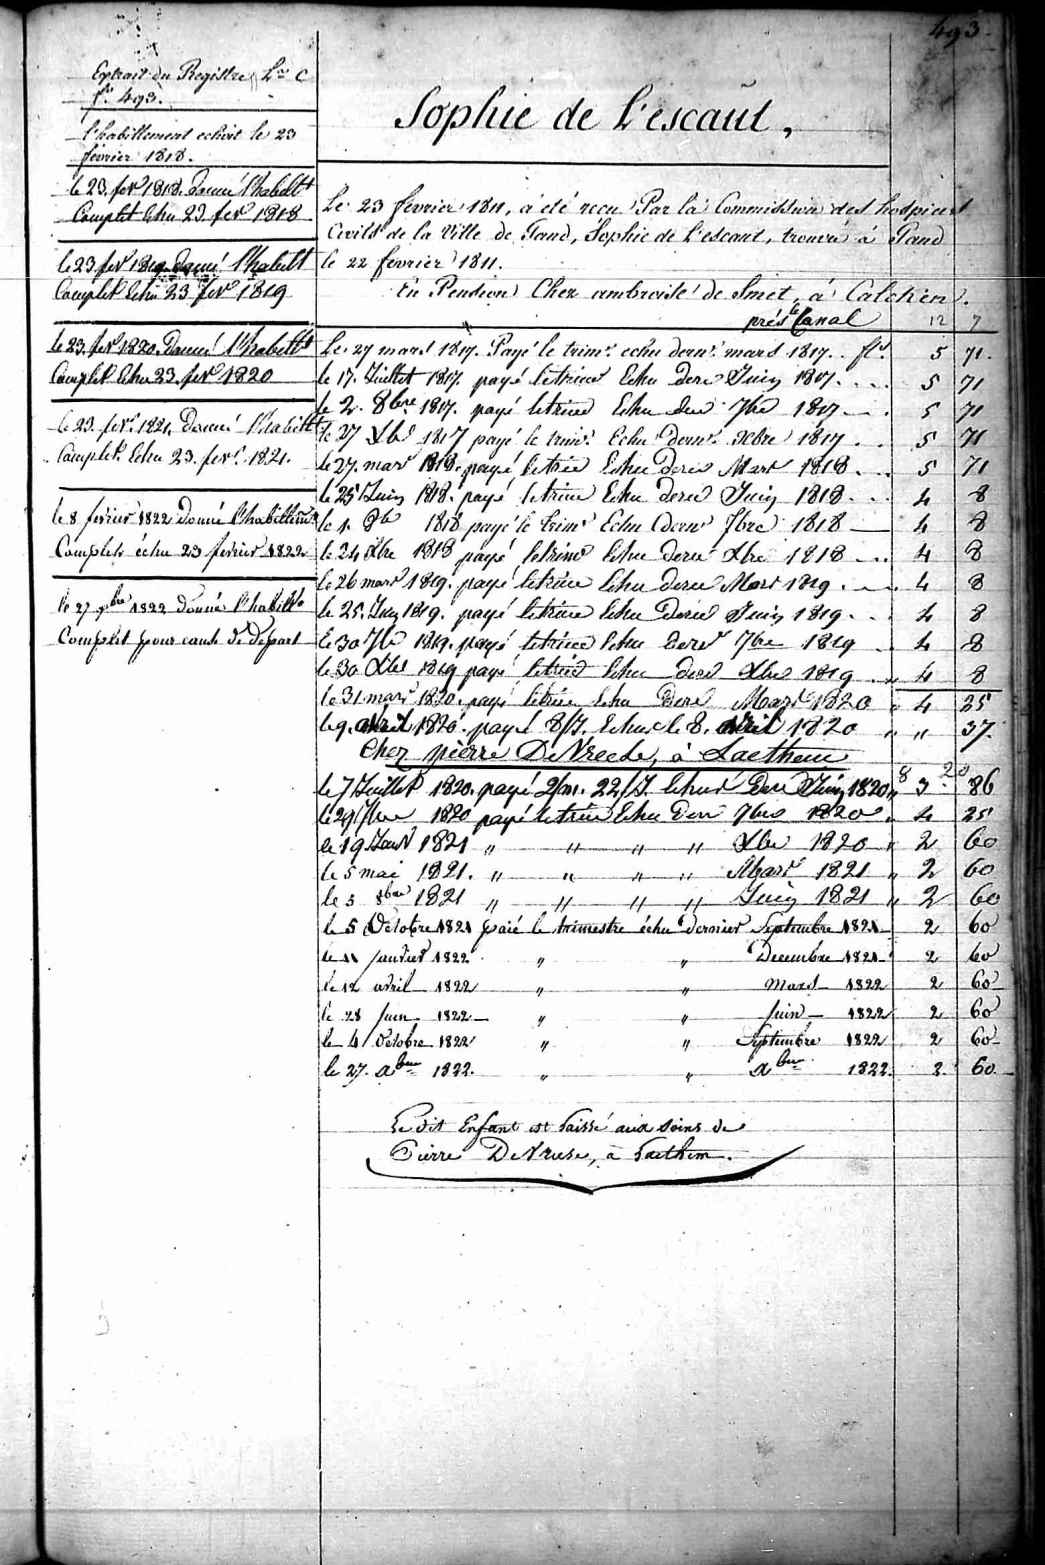 493.
Extrait du Registre Lre C
f° 493.
l'habillement echoit le 23
fevrier 1818.
le 23. fevr 1818. donné l'habillt
Complet Echu 23 fevr 1818
le 23 fevr 1819 donné l'habillt
Complet Echu 23 fevr 1819
le 23. fevr 1820. Donné l'habillt
Complet Echu 23. fevr 1820
le 23. fevr. 1821. Donné l'habillt
Complet Echu 23. fevr. 1821.
le 8 fevrier 1822 donné l'habillemt
Complet échu 23 fevrier 1822
le 27 xbre 1822 donné l'habillt
Complet pour cause de départ
Sophie de L'escaut,
Le 23 fevrier 1811, a été recu Par la Commission des hospices
Civils de la Ville de Gand, Sophie de L'escaut, trouvée à Gand
le 22 fevrier 1811.
En Pension Chez ambroise de Smet, à Calcken.
près le Canal 12 7
Le 27 mars 1817. Payé le trimr echu dernr mars 1817. fls 5 71.
le 17. Juillet 1817. payé le trimr Echu dernr Juin 1817. 5 71
le 2. 8bre 1817. payé le trimr Echu dernr 7bre 1817 5 71
le 27 Xbre 1817 payé le trimr Echu dernr xbre 1817 5 71
le 27. mars 1818. payé le trimr Echu dernr Mars 1818 5 71
le 25 Juin 1818. payé le trimr Echu dernr Juin 1818 4 8
le 1. 8bre 1818 payé le trimr Echu dernr 7bre 1818 4 8
le 24 Xbre 1818 payé le trimr Echu dernr Xbre 1818 4 8
le 26 mars 1819. payé le trimr Echu dernr Mars 1819 4 8
le 25. Juin 1819. payé le trimr Echu dernr Juin 1819 4 8
le 30 7bre 1819. payé le trimr Echu dernr 7bre 1819 4 8
le 30 Xbre 1819 payé le trimr Echu dernr Xbre 1819 4 8
le 31 mars 1820. payé le trimr Echu dernr Mars 1820 " 4 25
le 9. avril 1820. payé 8/J. Echus le 8. avril 1820 " " 37
Chez pierre De Vreese, à Laethem
8 20
le 7 Juillet 1820. payé 2/m. 22/J. Echus dernr Juin 1820 " 3 86
le 29 7bre 1820 payé le trimr Echu dernr 7bre 1820 " 4 25
le 19 Janvr 1821 " " " " Xbre 1820 " 2 60
le 5 mai 1821. " " " " Mars 1821 " 2 60
le 3 8bre 1821 " " " " Juin 1821 " 2 60
le 5 Octobre 1821 paié le trimestre échu dernier Septembre 1821 2 60
le 11 janvier 1822 " " Decembre 1821 2 60
le 12 avril 1822 " " mars 1822 2 60
le 28 juin 1822 " " juin 1822 2 60
le 4 Octobre 1822 " " Septembre 1822 2 60
le 27. xbre 1822. " " xbre 1822. 2. 60.
Le dit Enfant est laissé aux soins de
Pierre De Vreese, à Laethem.